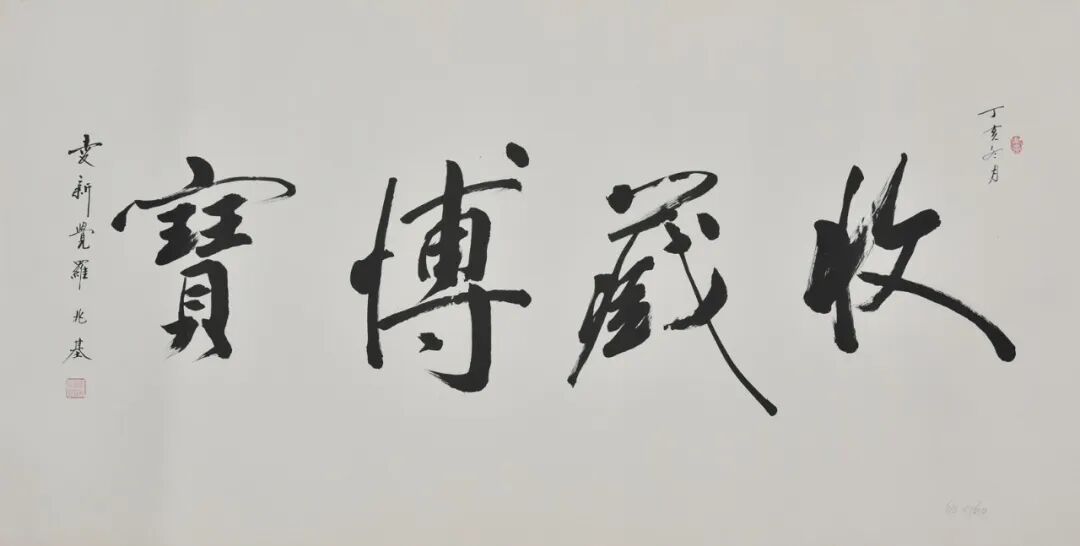 丁亥冬月
收藏博寶
愛新覺羅兆基